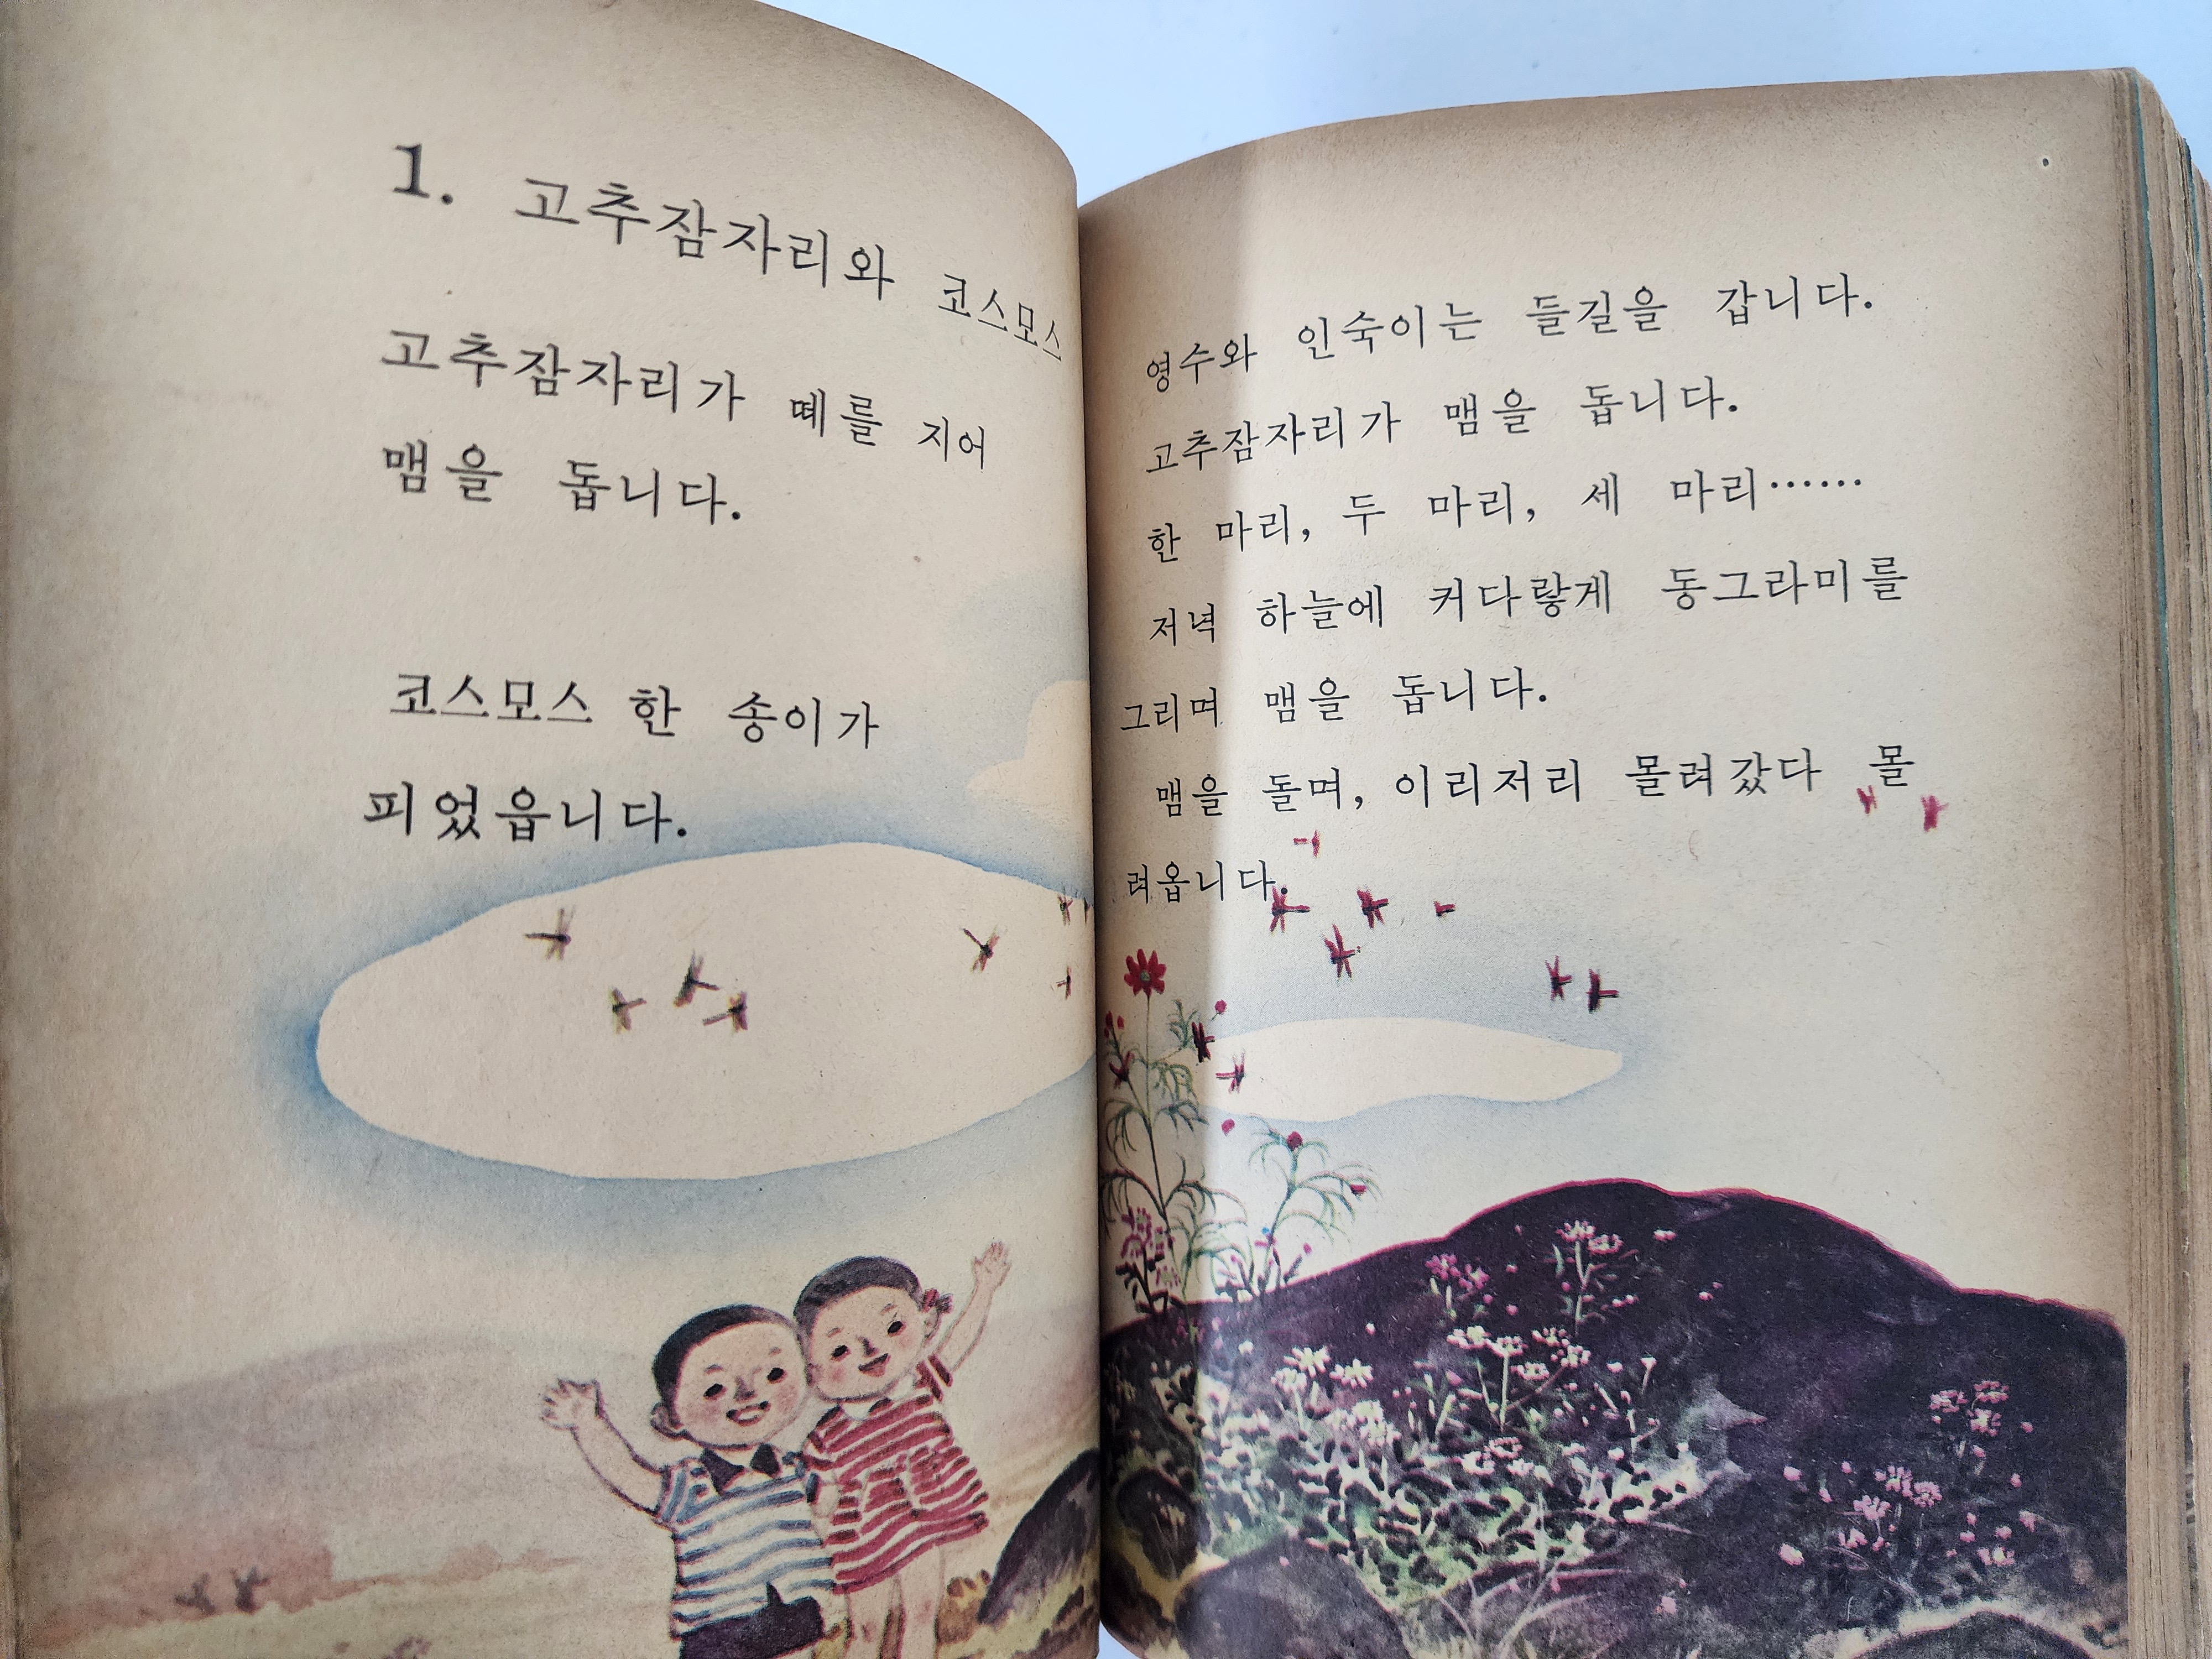 1. 고추잠자리와 코스모스
고추잠자리가 떼를 지어
맴을 돕니다.
코스모스 한 송이가
피었읍니다.
영수와 인숙이는 들길을 갑니다.
고추잠자리가 맴을 돕니다.
한 마리, 두 마리, 세 마리……
저녁 하늘에 커다랗게 동그라미를
그리며 맴을 돕니다.
맴을 돌며, 이리저리 몰려갔다 몰
려옵니다.